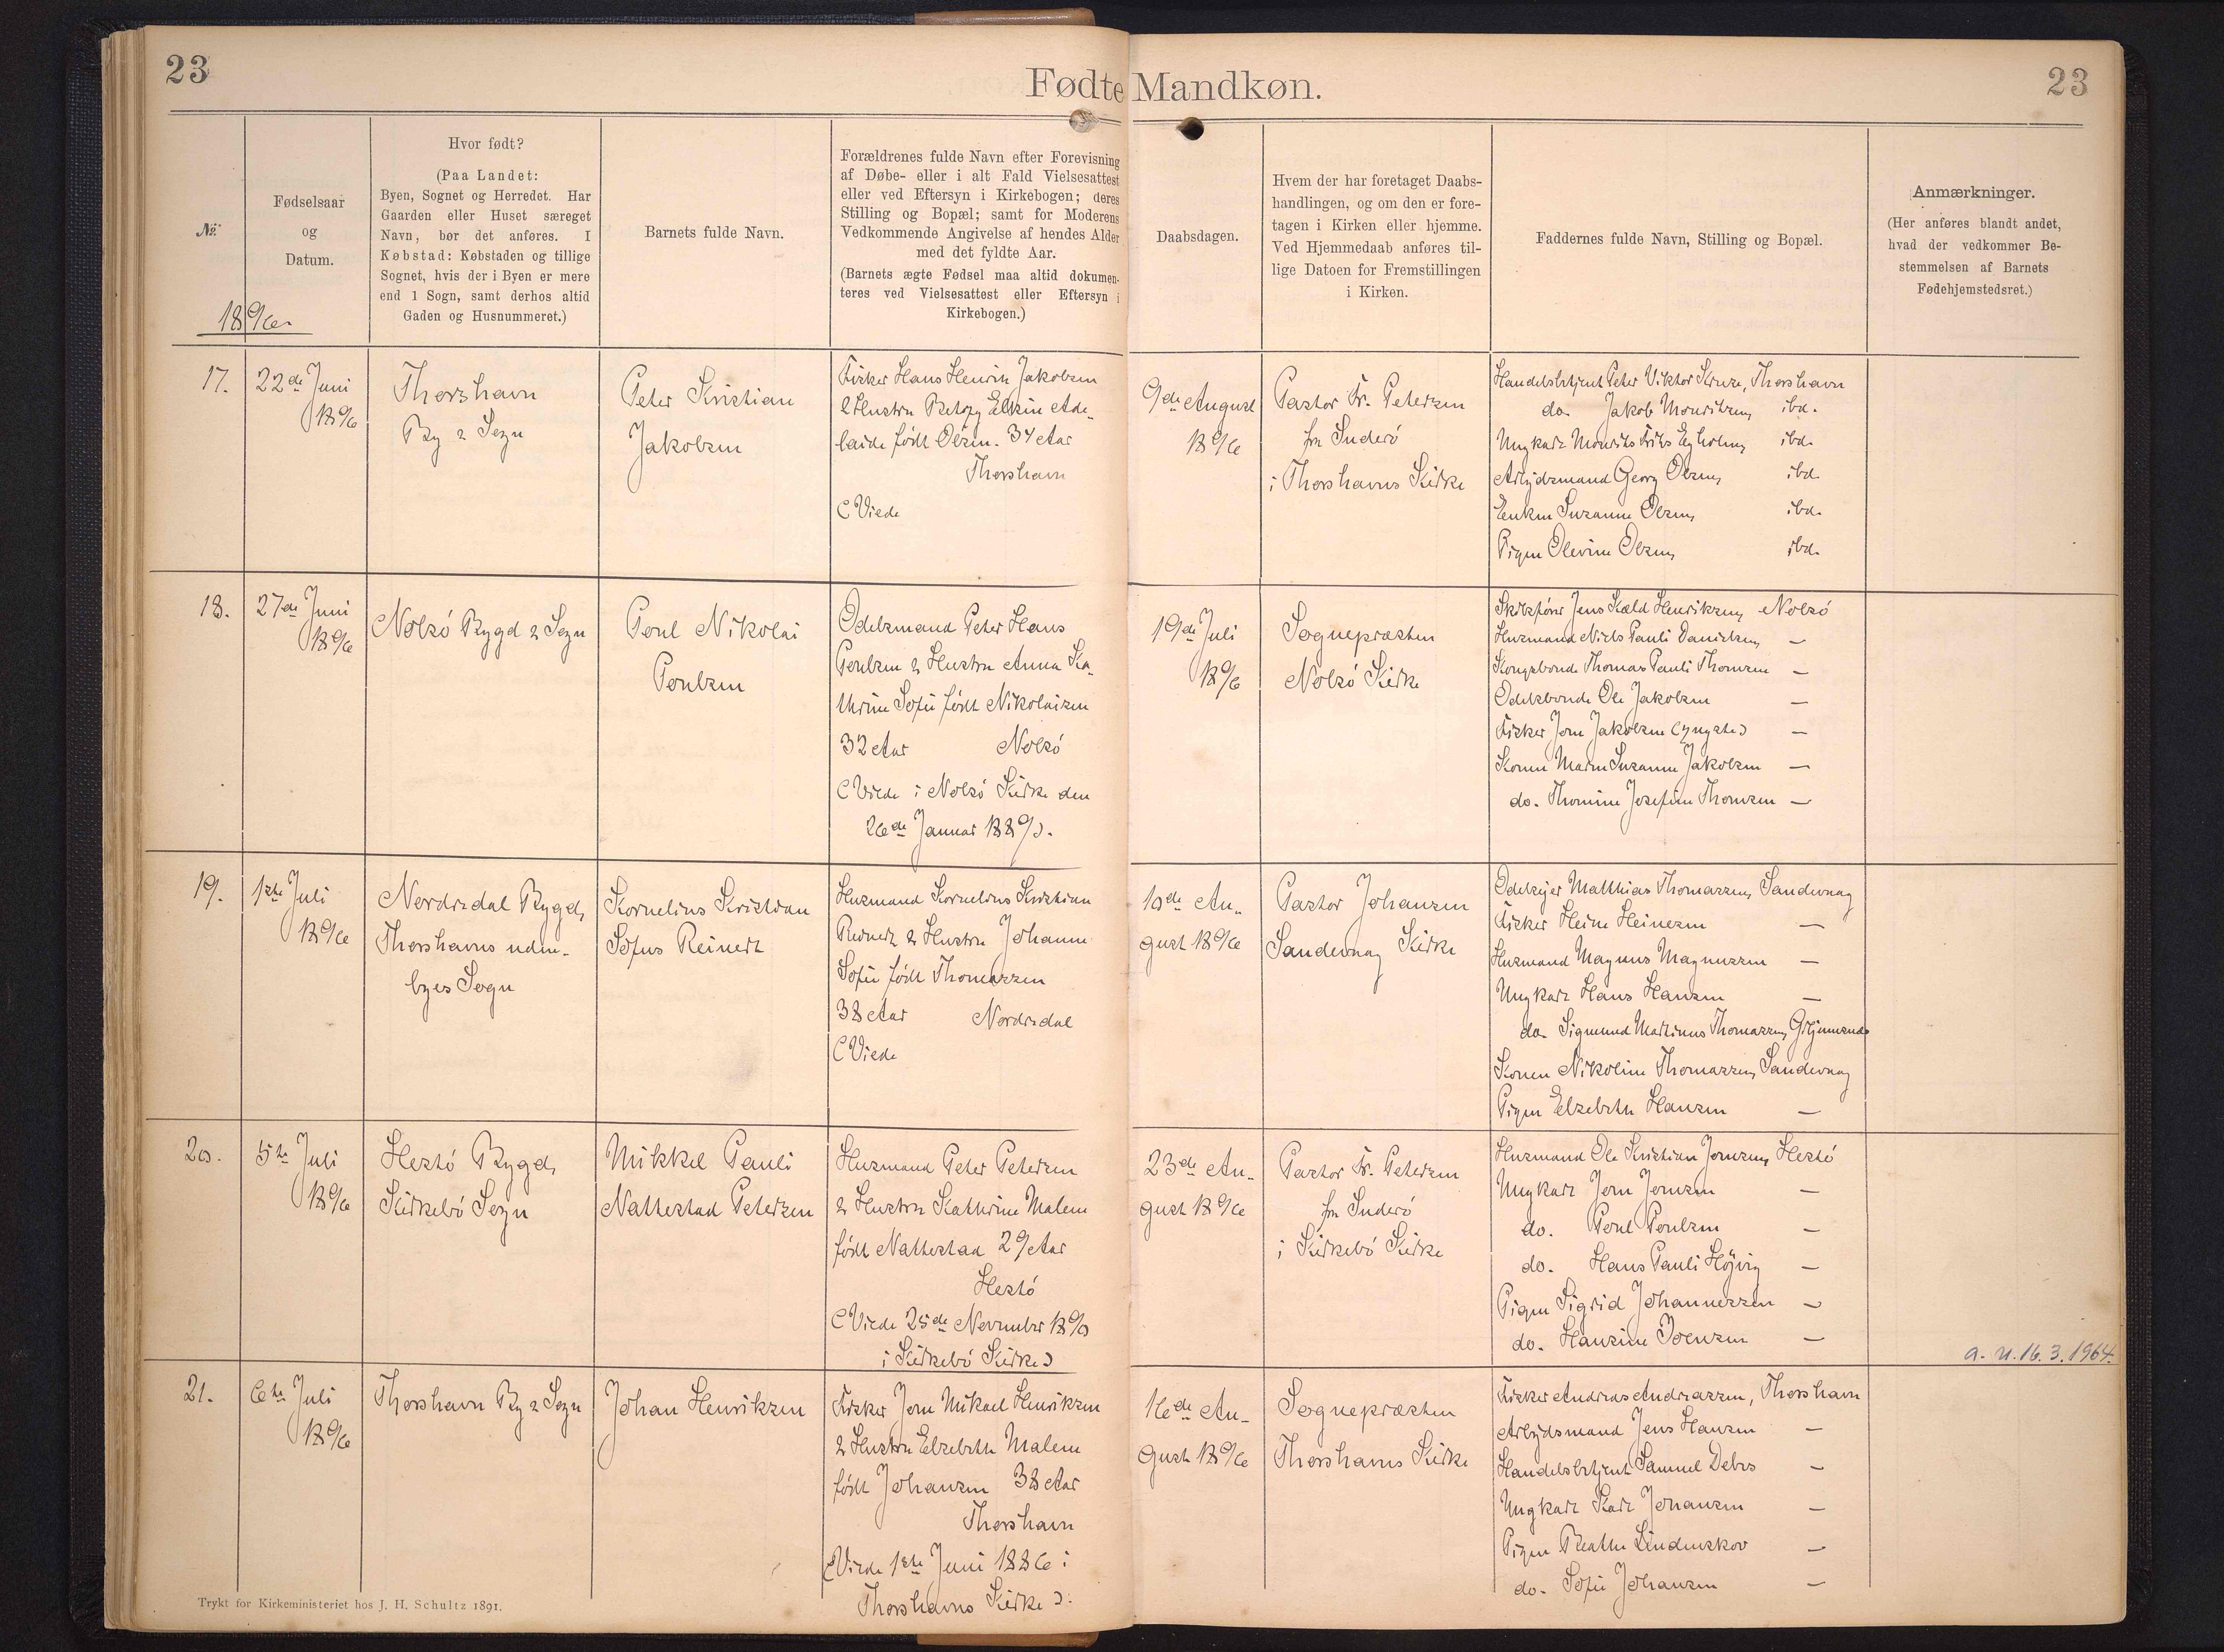 23
Fødte Mandkøn.
23
№
Fødselsaar
og
Datum.
1896.
Hvor født?
(Paa Landet:
Byen, Sognet og Herredet. Har
Gaarden eller Huset særeget
Navn, bør det anføres. I
Købstad: Købstaden og tillige
Sognet, hvis der i Byen er mere
end 1 Sogn, samt derhos altid
Gaden og Husnummeret.)
Barnets fulde Navn.
Forældrenes fulde Navn efter Forevisning
af Døbe- eller i alt Fald Vielsesattest
eller ved Eftersyn i Kirkebogen; deres
Stilling og Bopæl; samt for Moderens
Vedkommende Angivelse af hendes Alder
med det fyldte Aar.
(Barnets ægte Fødsel maa altid dokumen-
teres ved Vielsesattest eller Eftersyn i
Kirkebogen.)
Daabsdagen.
Hvem der har foretaget Daabs-
handlingen, og om den er fore-
tagen i Kirken eller hjemme.
Ved Hjemmedaab anføres til-
lige Datoen for Fremstillingen
i Kirken.
Faddernes fulde Navn, Stilling og Bopæl.
Anmærkninger.
(Her anføres blandt andet,
hvad der vedkommer Be-
stemmelsen af Barnets
Fødehjemstedsret.)
17.
22de Juni
1896
Thorshavn
By & Sogn
Peter Kristian
Jakobsen
Fisker Hans Henrik Jakobsen
& Hustru Betsy Elkine Ade-
laide født Olsen. 34 Aar
Thorshavn
(Viede
9de August
1896
Pastor Fr. Petersen
fra Suderö
i Thorshavns Kirke
Handelsbetjent Peter Viktor Kruse, Thorshavn
do. Jakob Mouritsen, ibd.
Ungkarl Mourits Frits Egholm, ibd.
Arbejdsmand Georg Olsen, ibd.
Enken Susanne Olsen, ibd.
Pigen Olevine Olsen, ibd.
18.
27de Juni
1896
Nolsö Bygd & Sogn
Poul Nikolai
Poulsen
Odelsmand Peter Hans
Poulsen & Hustru Anna Ka-
thrine Sofie født Nikolaisen
32 Aar Nolsö
(Viede i Nolsö Kirke den
26de Januar 1889).
19de Juli
1896
Sognepræsten
Nolsö Kirke
Skibsfører Jens Kjeld Henriksen, Nolsö
Husmand Niels Pauli Danielsen, —
Kongsbonde Thomas Pauli Thomsen —
Odelsbonde Ole Jakobsen —
Fisker Joen Jakobsen (yngste) —
Konen Maren Susanne Jakobsen —
do. Thomine Josefine Thomsen —
19.
1ste Juli
1896
Nordredal Bygd,
Thorshavns uden-
byes Sogn
Kornelius Kristian
Sofus Reinert
Husmand Kornelius Kristian
Reinert & Hustru Johanne
Sofie født Thomassen
38 Aar Nordredal
(Viede
10de Au-
gust 1896
Pastor Johansen
Sandevaag Kirke
Odelsejer Matthias Thomassen, Sandevaag
Fisker Heine Heinesen —
Husmand Magnus Magnussen —
Ungkarl Hans Hansen —
do. Sigmund Martinus Thomassen,
Konen Nikoline Thomassen, Sandevaag
Pigen Elsebeth Hansen —
20.
5te Juli
1896
Hestö Bygd,
Kirkebö Sogn
Mikkel Pauli
Nattestad Petersen
Husmand Peter Petersen
& Hustru Kathrine Malene
født Nattestad 29 Aar
Hestö
(Viede 25de November 1890
i Kirkebö Kirke)
23de Au-
gust 1896
Pastor Fr. Petersen
fra Suderö
i Kirkebö Kirke
Husmand Ole Kristian Joensen, Hestö
Ungkarl Joen Joensen —
do. Poul Poulsen —
do. Hans Pauli Höjvig —
Pigen Sigrid Johannessen —
do. Hansine Joensen —
a. u. 16. 3. 1964.
21.
6te Juli
1896
Thorshavn By & Sogn
Johan Henriksen
Fisker Joen Mikael Henriksen
& Hustru Elsebeth Malene
født Johansen 38 Aar
Thorshavn
(Viede 1ste Juni 1886 i
Thorshavns Kirke).
16de Au-
gust 1896
Sognepræsten
Thorshavns Kirke
Fisker Andreas Andreassen, Thorshavn
Arbejdsmand Jens Hansen —
Handelsbetjent Samuel Debes —
Ungkarl Karl Johansen —
Pigen Beathe Lindenskov —
do. Sofie Johansen —
Trykt for Kirkeministeriet hos J. H. Schultz 1891.